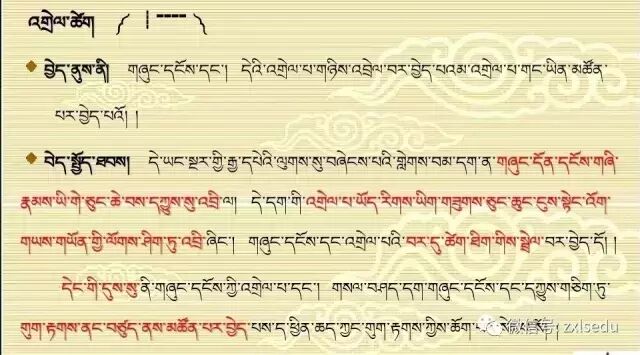 འགྲེལ་ཚེག ༼ །---- ༽
བྱེད་ནུས་ནི། གཞུང་དངོས་དང་། དེའི་འགྲེལ་པ་གཉིས་འབྲེལ་བར་བྱེད་པའམ་འགྲེལ་པ་གང་ཡིན་མཚོན་
པར་བྱེད་པའོ། །
བེད་སྤྱོད་ཐབས། དེ་ཡང་སྔར་གྱི་རྒྱ་དཔེའི་ལུགས་སུ་བཞེངས་པའི་གླེགས་བམ་དག་ན་གཞུང་དོན་དངོས་གཞི་
རྣམས་ཡི་གེ་ཅུང་ཆེ་བས་དཀྱུས་སུ་འབྲི་ལ། དེ་དག་གི་འགྲེལ་པ་ཡོད་རིགས་ཡིག་གཟུགས་ཅུང་ཆུང་དུས་སྟེང་འོག་
གཡས་གཡོན་གྱི་ལོགས་ཤིག་ཏུ་འབྲི་ཞིང་། གཞུང་དངོས་དང་འགྲེལ་པའི་བར་དུ་ཚེག་ཐིག་གིས་སྦྲེལ་བར་བྱེད་དོ། །
དེང་གི་དུས་སུ་ནི་གཞུང་དངོས་ཀྱི་འགྲེལ་པ་དང་། གསལ་བཤད་དག་གཞུང་དངོས་དང་དཀྱུས་གཅིག་ཏུ་
གུག་རྟགས་ནང་བཙུད་ནས་མཚོན་པར་བྱེད་པས་ད་ཕྱིན་ཆད་ཀྱང་གུག་རྟགས་ཀྱིས་ཆོག་
微信号: zxlsedu